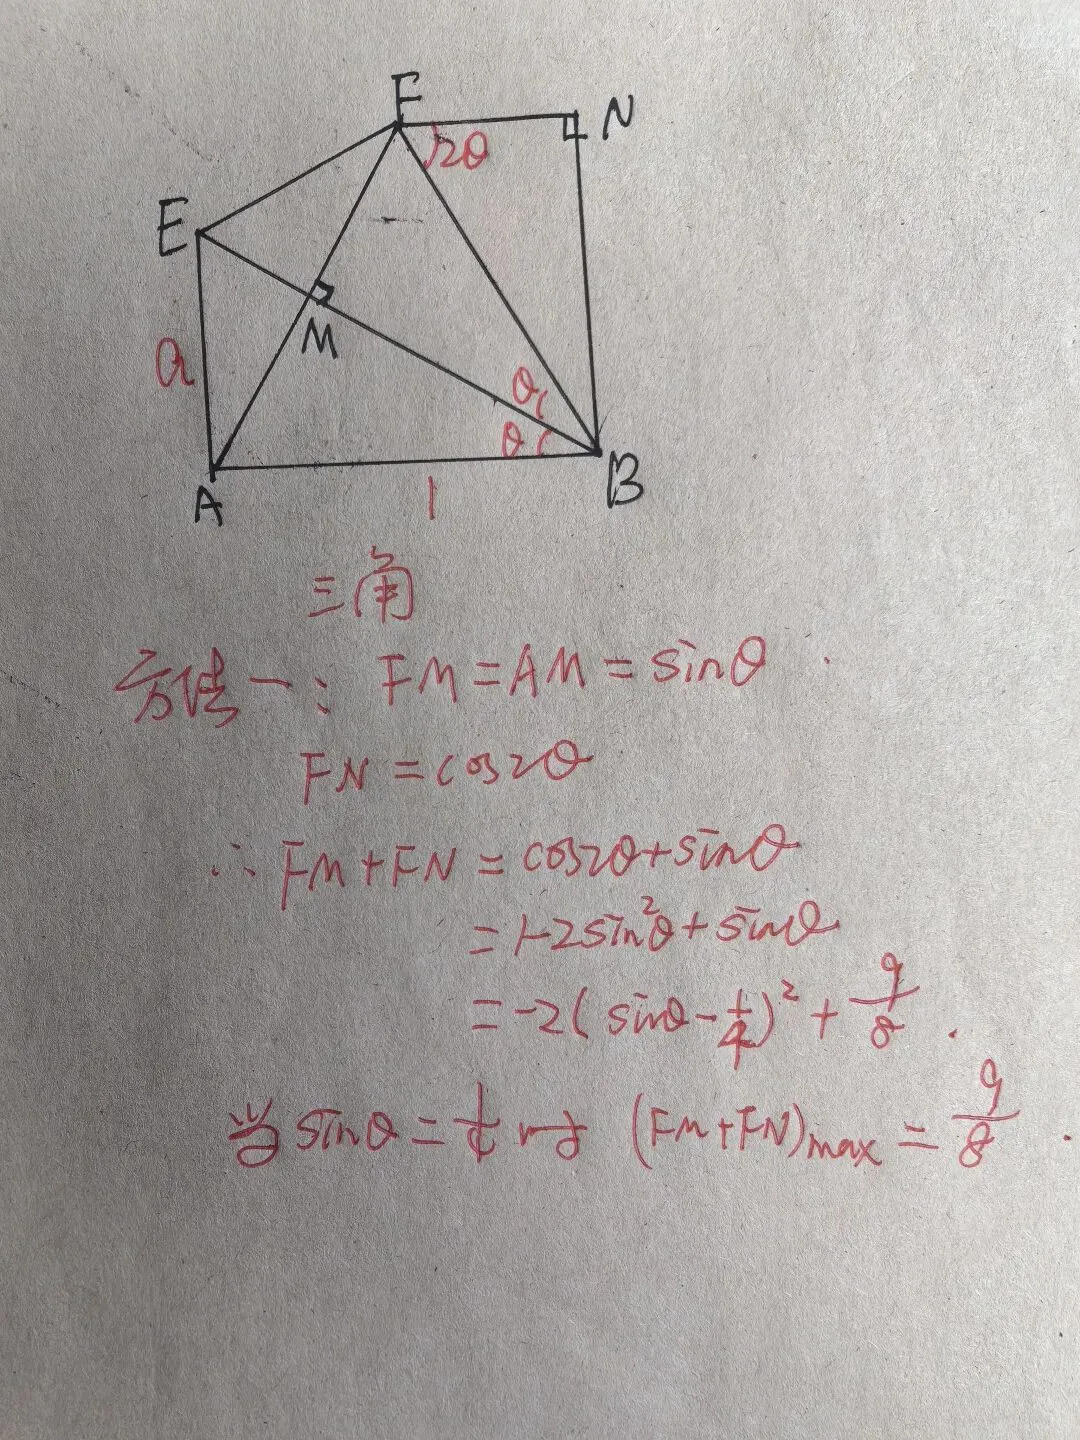 F
N
2θ
E
M
a
θ
θ
A
1
B
三角
方法一: FM=AM=sinθ
FN=cos2θ
∴FM+FN=cos2θ+sinθ
=1-2sin²θ+sinθ
=-2(sinθ-1/4)²+9/8.
当sinθ=1/4时 (FM+FN)max=9/8.